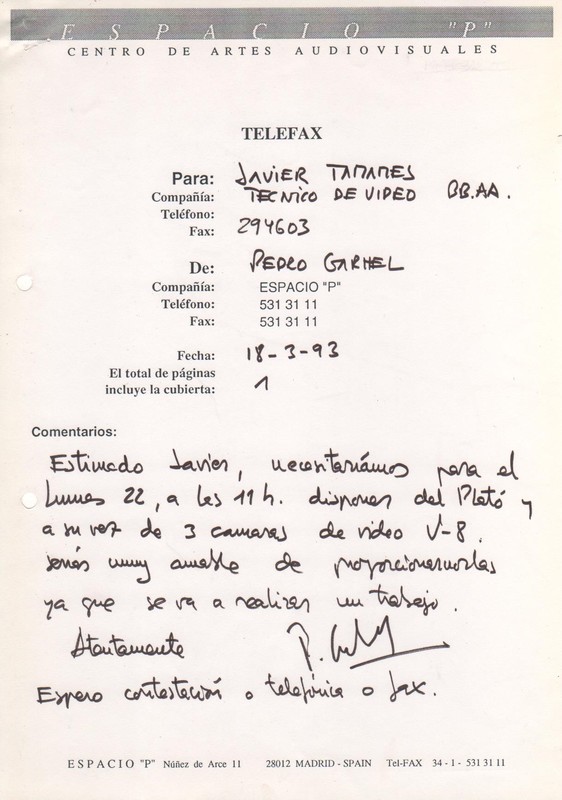 ESPACIO "P"
CENTRO DE ARTES AUDIOVISUALES
TELEFAX
Para: JAVIER TAMAMES
Compañía: TECNICO DE VIDEO BB.AA.
Teléfono:
Fax: 294603
De: PEDRO GARHEL
Compañía: ESPACIO "P"
Teléfono: 531 31 11
Fax: 531 31 11
Fecha: 18-3-93
El total de páginas
incluye la cubierta: 1
Comentarios:
Estimado Javier, necesitariámos para el
Lunes 22, a las 11 h. disponer del Plató y
a su vez de 3 camaras de video V-8.
serías muy amable de proporcionarnoslas
ya que se va a realizar un trabajo.
Atentamente
Espero contestación o telefónica o fax.
ESPACIO "P" Núñez de Arce 11 28012 MADRID - SPAIN Tel-FAX 34 - 1 - 531 31 11